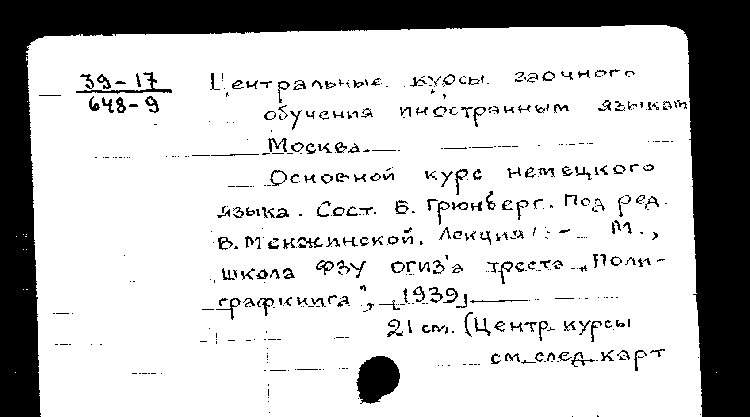 39-17
648-9
Центральные курсы заочного
обучения иностранным языкам
Москва.
Основной курс немецкого
языка. Сост. Б. Грюнберг. Под ред.
В. Менжинской. Лекция 1:- М.,
школа ФЗУ ОГИЗ'а треста „Поли-
графкнига", [1939]
21 см. (Центр. курсы
см. след. карт